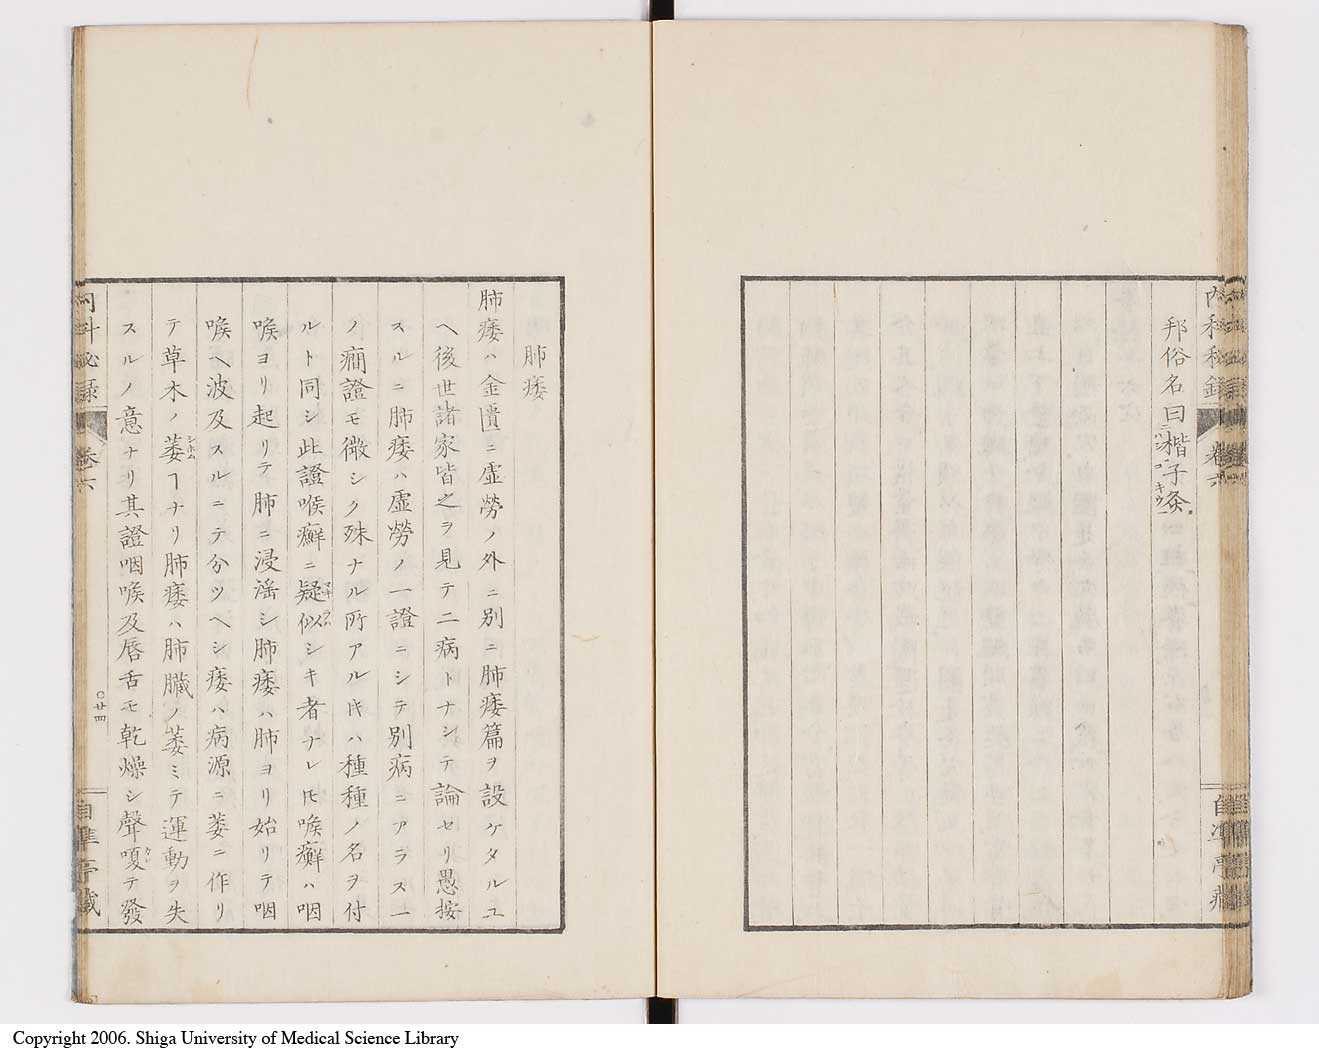 内科秘録 卷六 自準亭藏
邦俗名曰楷子灸
肺痿
肺痿ハ金匱ニ虚勞ノ外ニ別ニ肺痿篇ヲ設ケタルユ
ヘ後世諸家皆之ヲ見テ二病トナシテ論セリ愚按
スルニ肺痿ハ虚勞ノ一證ニシテ別病ニアラス一
ノ癎證モ微シク殊ナル所アル𪜈ハ種種ノ名ヲ付
ルト同シ此證喉癬ニ疑似シキ者ナレ𪜈喉癬ハ咽
喉ヨリ起リテ肺ニ浸滛シ肺痿ハ肺ヨリ始リテ咽
喉ヘ波及スルニテ分ツヘシ痿ハ病源ニ萎ニ作リ
テ草木ノ萎ヿナリ肺痿ハ肺臟ノ萎ミテ運動ヲ失
スルノ意ナリ其證咽喉及唇舌モ乾燥シ聲嗄テ發
内科祕録 卷六 〇廿四 自準亭藏
Copyright 2006. Shiga University of Medical Science Library